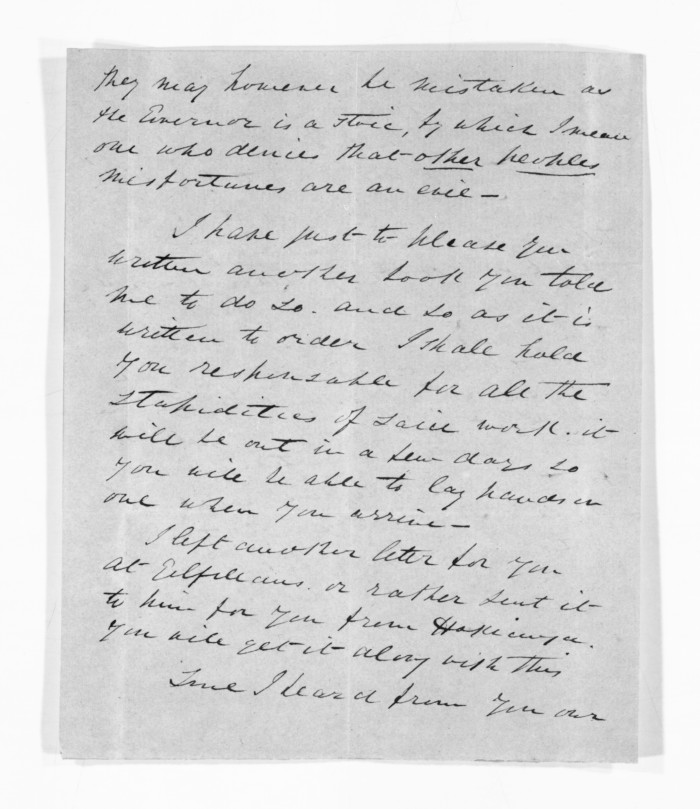 they may however be mistaken as
the Governor is a Stoic, by which I mean
one who denies that other peoples
misfortunes are an evil —
I have just to please you
written another book you told
me to do so. and so as it is
written to order I shall hold
you responsable for all the
stupidities of said work. it
will be out in a few days so
you will be able to lay hands on
one when you arrive —
I left another letter for you
at Gilfillans. or rather sent it
to him for you from Hokianga.
you will get it along with this
Since I heard from you our